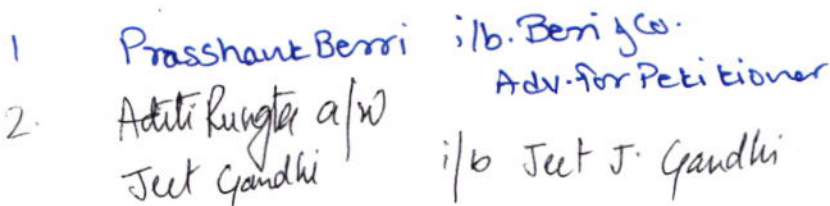 1 Prasshant Berri i/b. Beri & Co.
Adv. for Petitioner
2. Aditi Rungta a/w
Jeet Gandhi i/b Jeet J. Gandhi